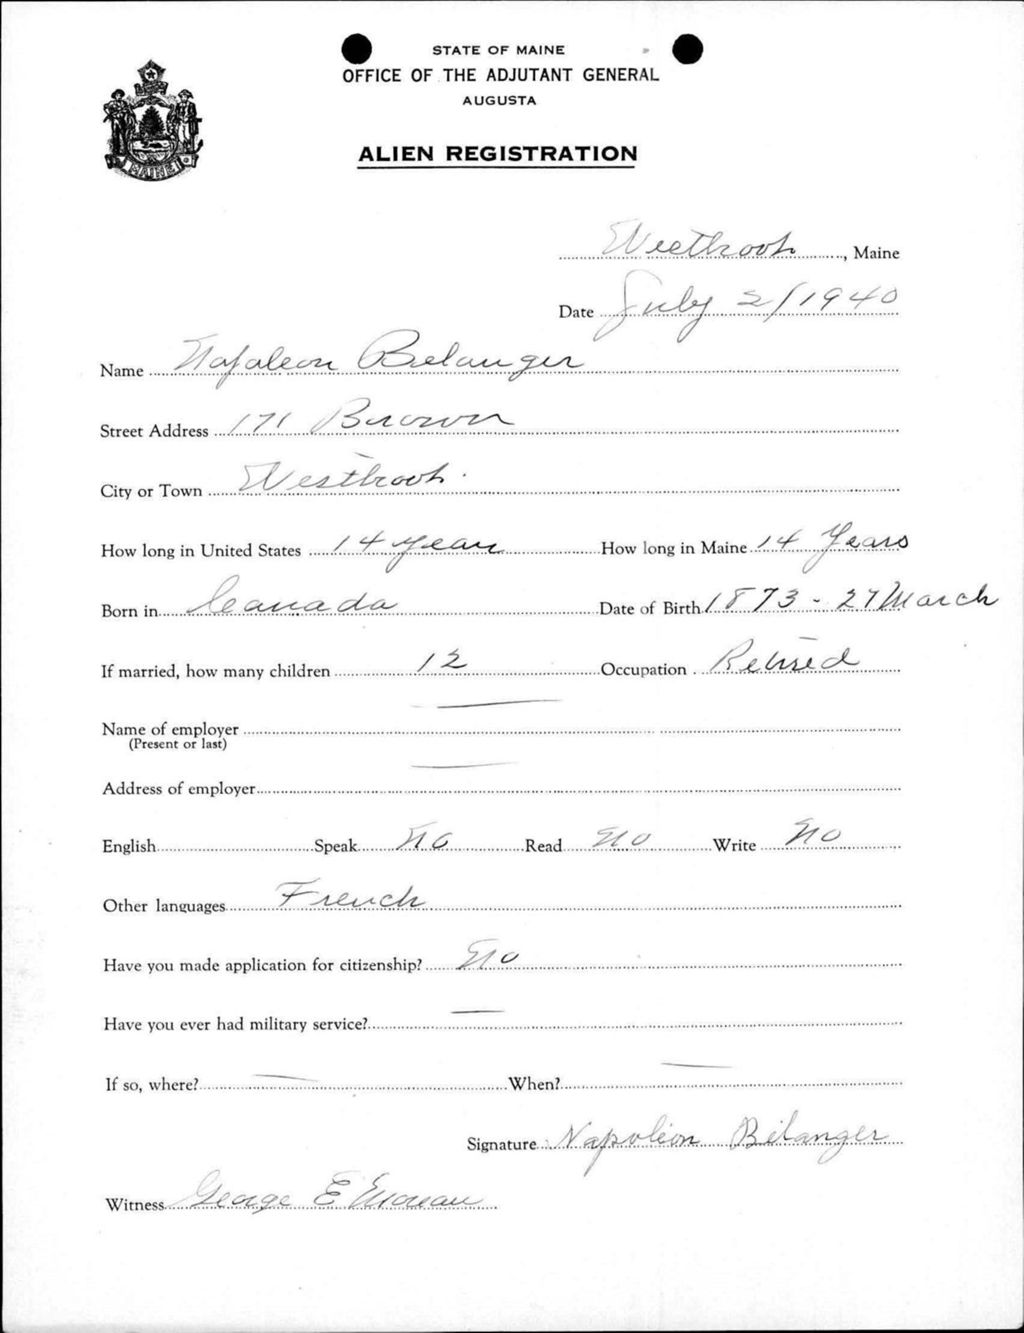 STATE OF MAINE
OFFICE OF THE ADJUTANT GENERAL
AUGUSTA
ALIEN REGISTRATION
MAINE
Westbrook, Maine
Date July 2/1940
Name Napoleon Belanger
Street Address 171 Brown
City or Town Westbrook
How long in United States 14 years How long in Maine 14 Years
Born in Canada Date of Birth 1873 - 27 March
If married, how many children 12 Occupation Retired
Name of employer
(Present or last)
Address of employer
English Speak No Read No Write No
Other languages French
Have you made application for citizenship? No
Have you ever had military service?
If so, where? When?
Signature Napoléon Bélanger
Witness George E Moreau